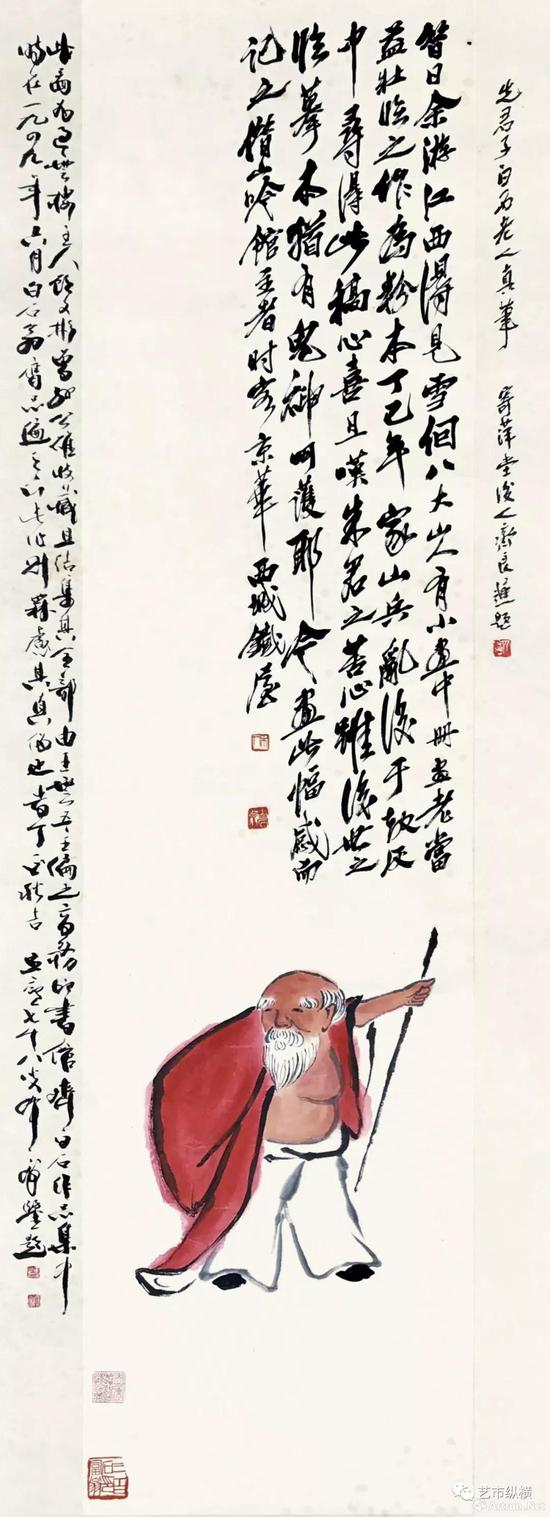 先君子白石老人真筆 寄萍堂後人齊良遲題
昔日余游江西得見雪個八大山人有小畫中冊畫老當
益壯臨之作為粉本丁巳年家山兵亂後于劫灰
中尋得此稿心喜且嘆朱君之苦心雖後世之
臨摹本猶有鬼神呵護耶今畫此幅感而
記之借山吟館主者時客京華西城鐵屋
此畫為過雲樓主人顧文彬曾孫公雄收藏且結集其全部由主編之商務印書館齊白石作品集中
時在一九四九年六月白石翁
艺市纵横
Artron.Net